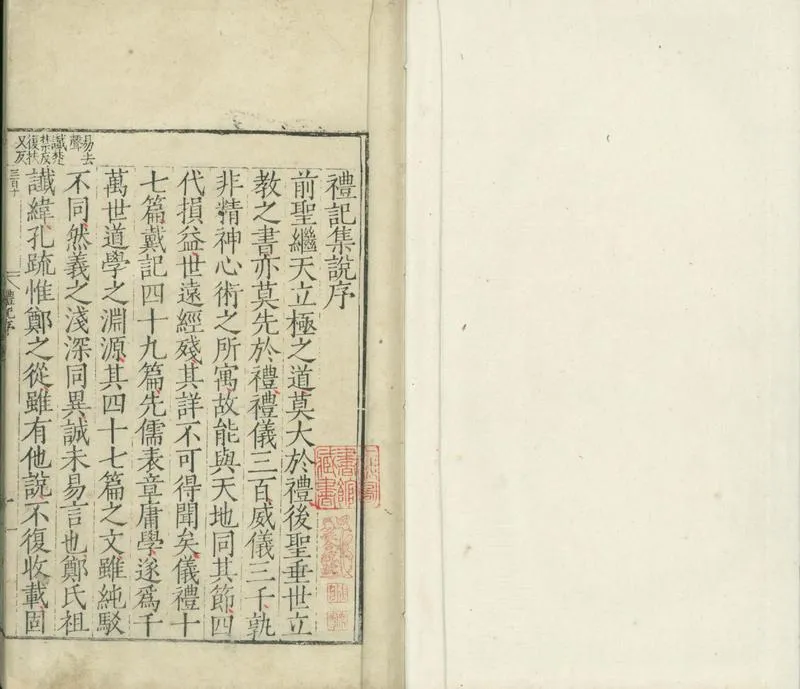 禮記集說序
前聖繼天立極之道莫大於禮後聖垂世立
教之書亦莫先於禮禮儀三百威儀三千孰
非精神心術之所寓故能與天地同其節四
代損益世遠經殘其詳不可得聞矣儀禮十
七篇戴記四十九篇先儒表章庸學遂爲千
萬世道學之淵源其四十七篇之文雖純駁
不同然義之淺深同異誠未易言也鄭氏祖
讖緯孔疏惟鄭之從雖有他說不復收載固
易去
聲
讖楚
禁反
復扶
又反
禮記序
書館
藏書